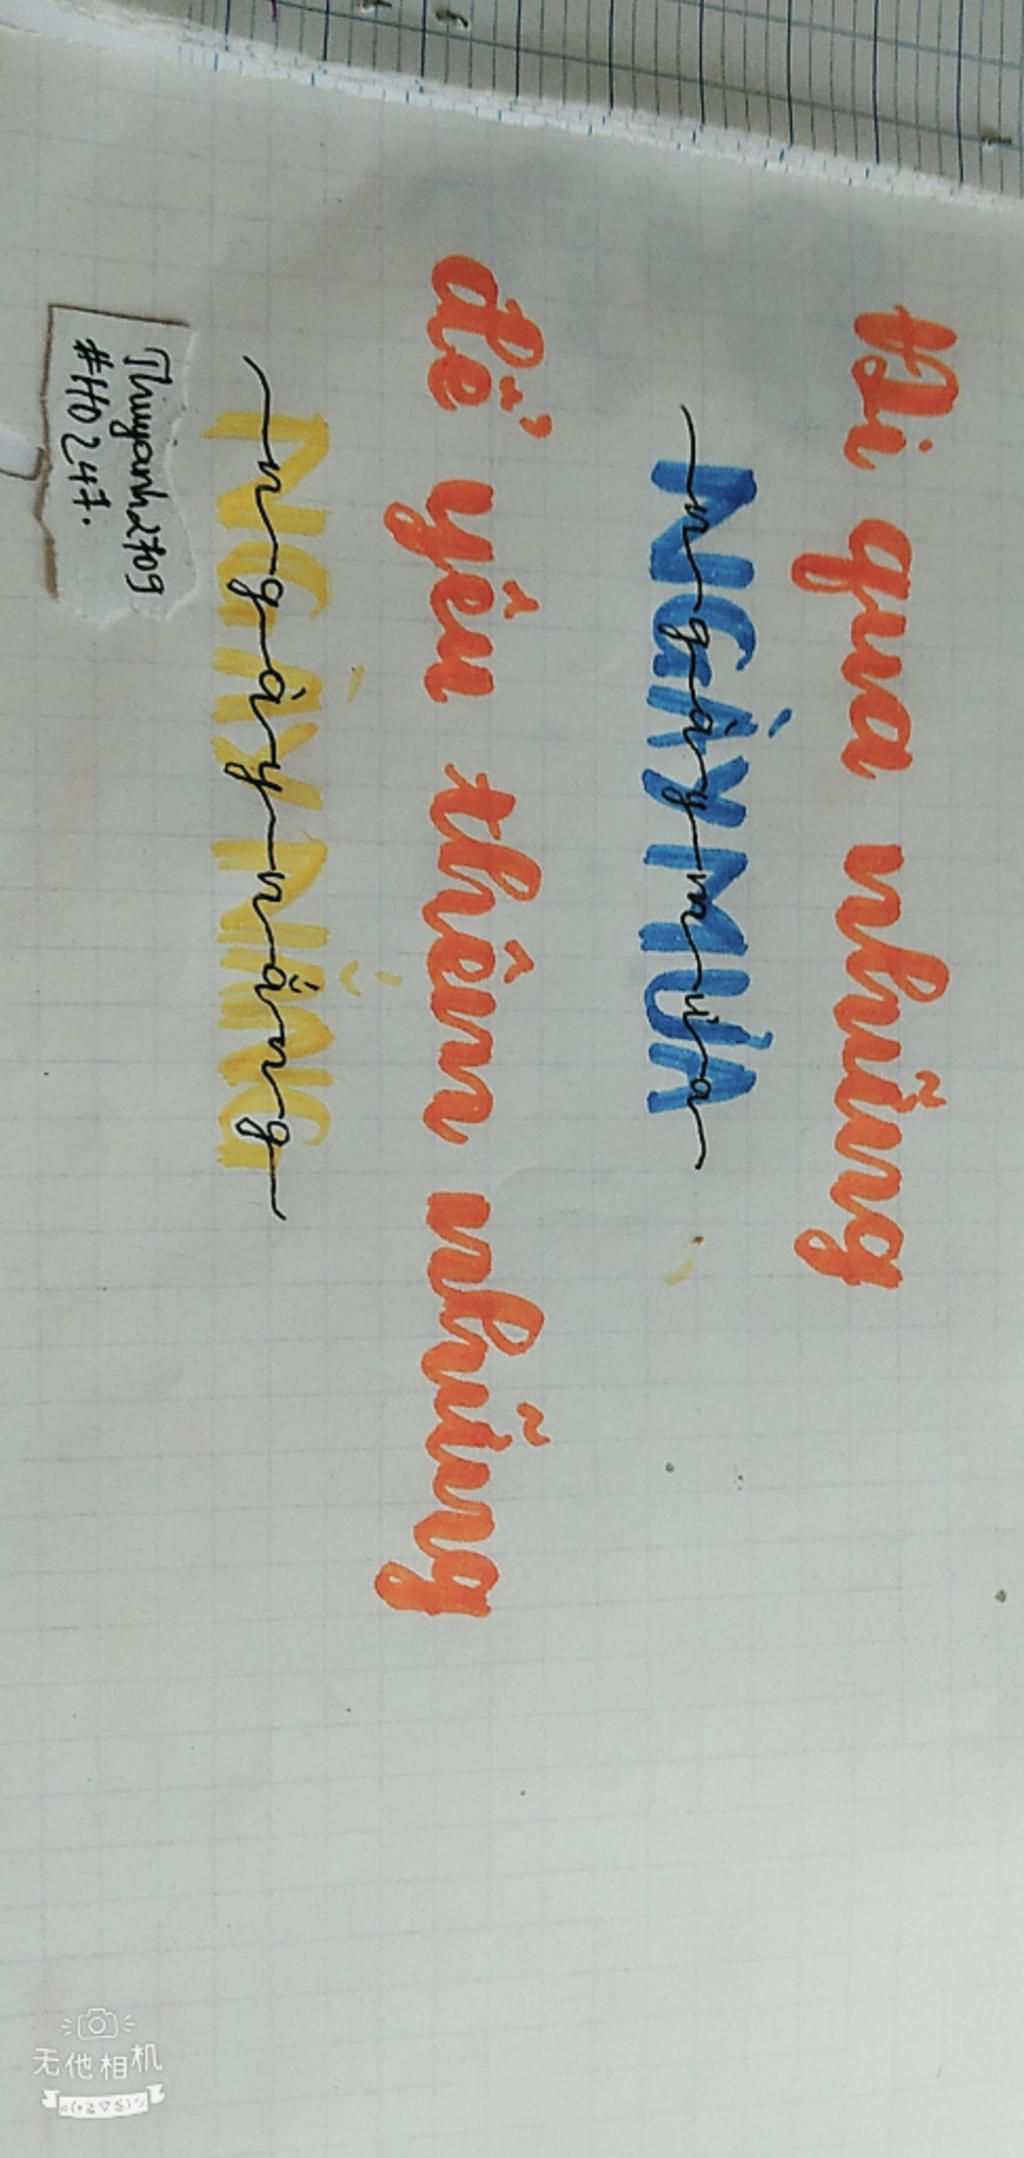 Đi qua những
NGÀY MƯA
ngày mưa
để yêu thêm những
NGÀY NẮNG
ngày nắng
Thuyanh2709
#HD247.
无他相机